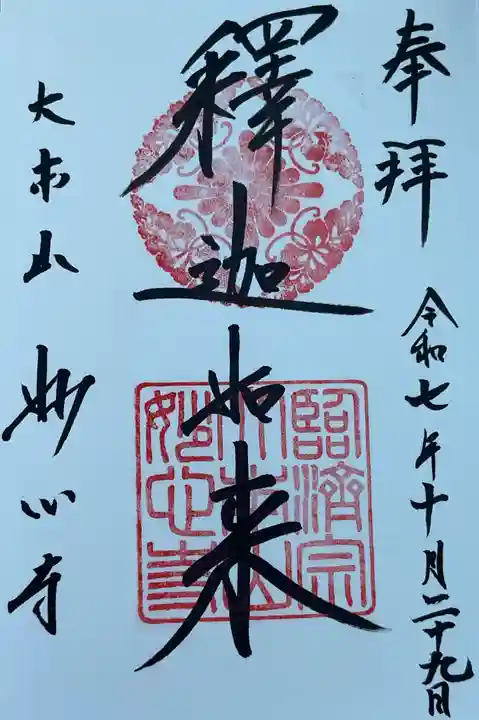 奉拝
令和七年十月二十九日
釋迦如来
臨済宗
大本山
妙心寺
大本山
妙心寺